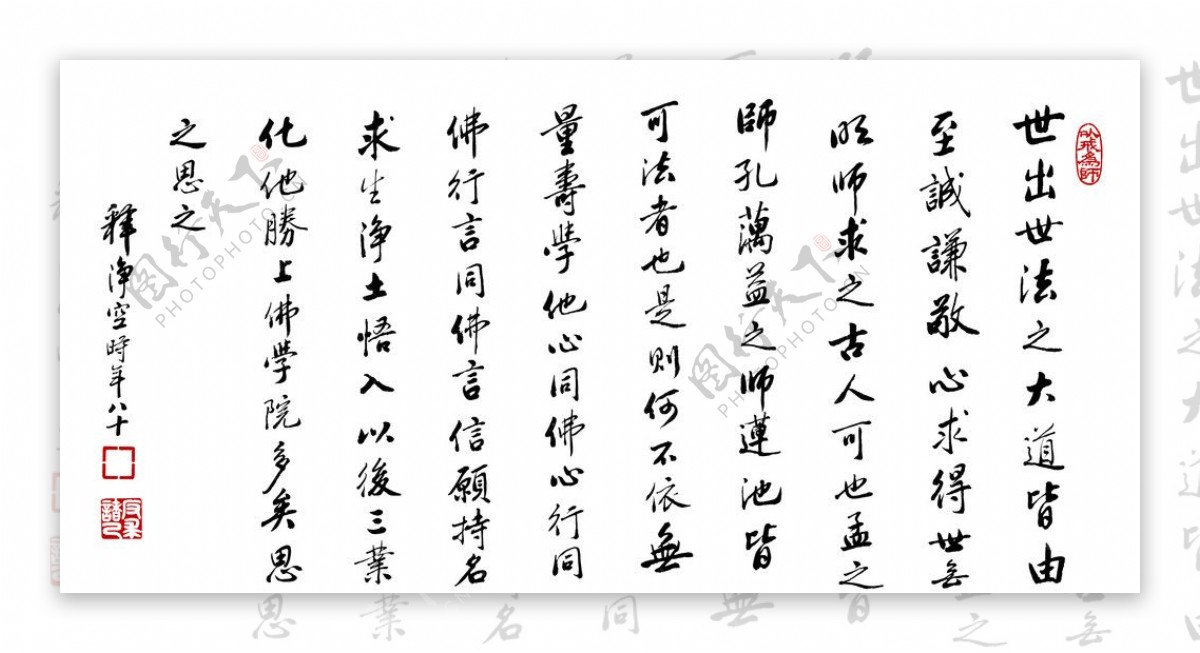 以戒為師
世出世法之大道皆由
至誠謙敬心求得世無
明師求之古人可也孟之
師孔蕅益之師蓮池皆
可法者也是則何不依無
量壽學他心同佛心行同
佛行言同佛言信願持名
求生淨土悟入以後三業
化他勝上佛學院多矣思
之思之
釋淨空時年八十
反求諸己
图行天下
PHOTOPHOTO.CN